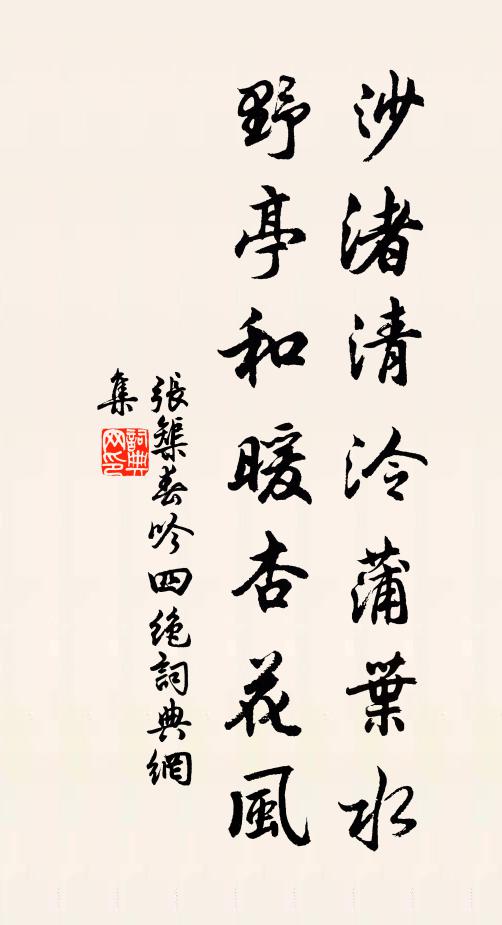 沙渚清泠蒲葉水
野亭和暖杏花風
張榘春吟四絶詞典網
集
詞典
网印